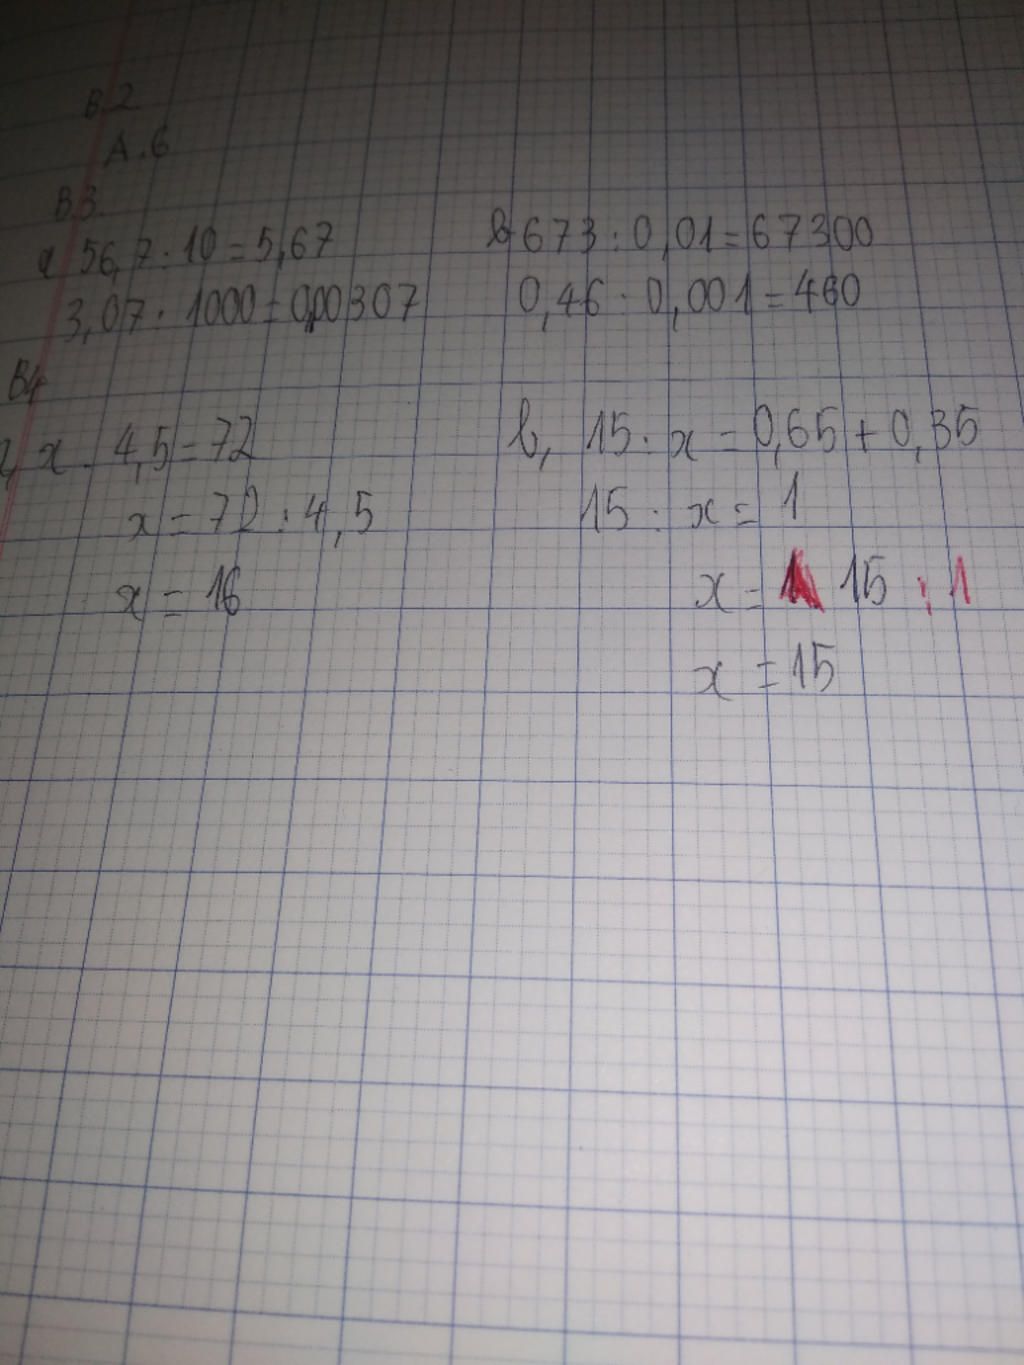 B.2
A.6
B.3.
a 56,7 : 10 = 5,67
3,07 : 1000 = 0,00307
b 673 : 0,01 = 67300
0,46 : 0,001 = 460
B4
x . 4,5 = 72
x = 72 : 4,5
x = 16
b, 15 : x = 0,65 + 0,35
15 : x = 1
x = 15 : 1
x = 15